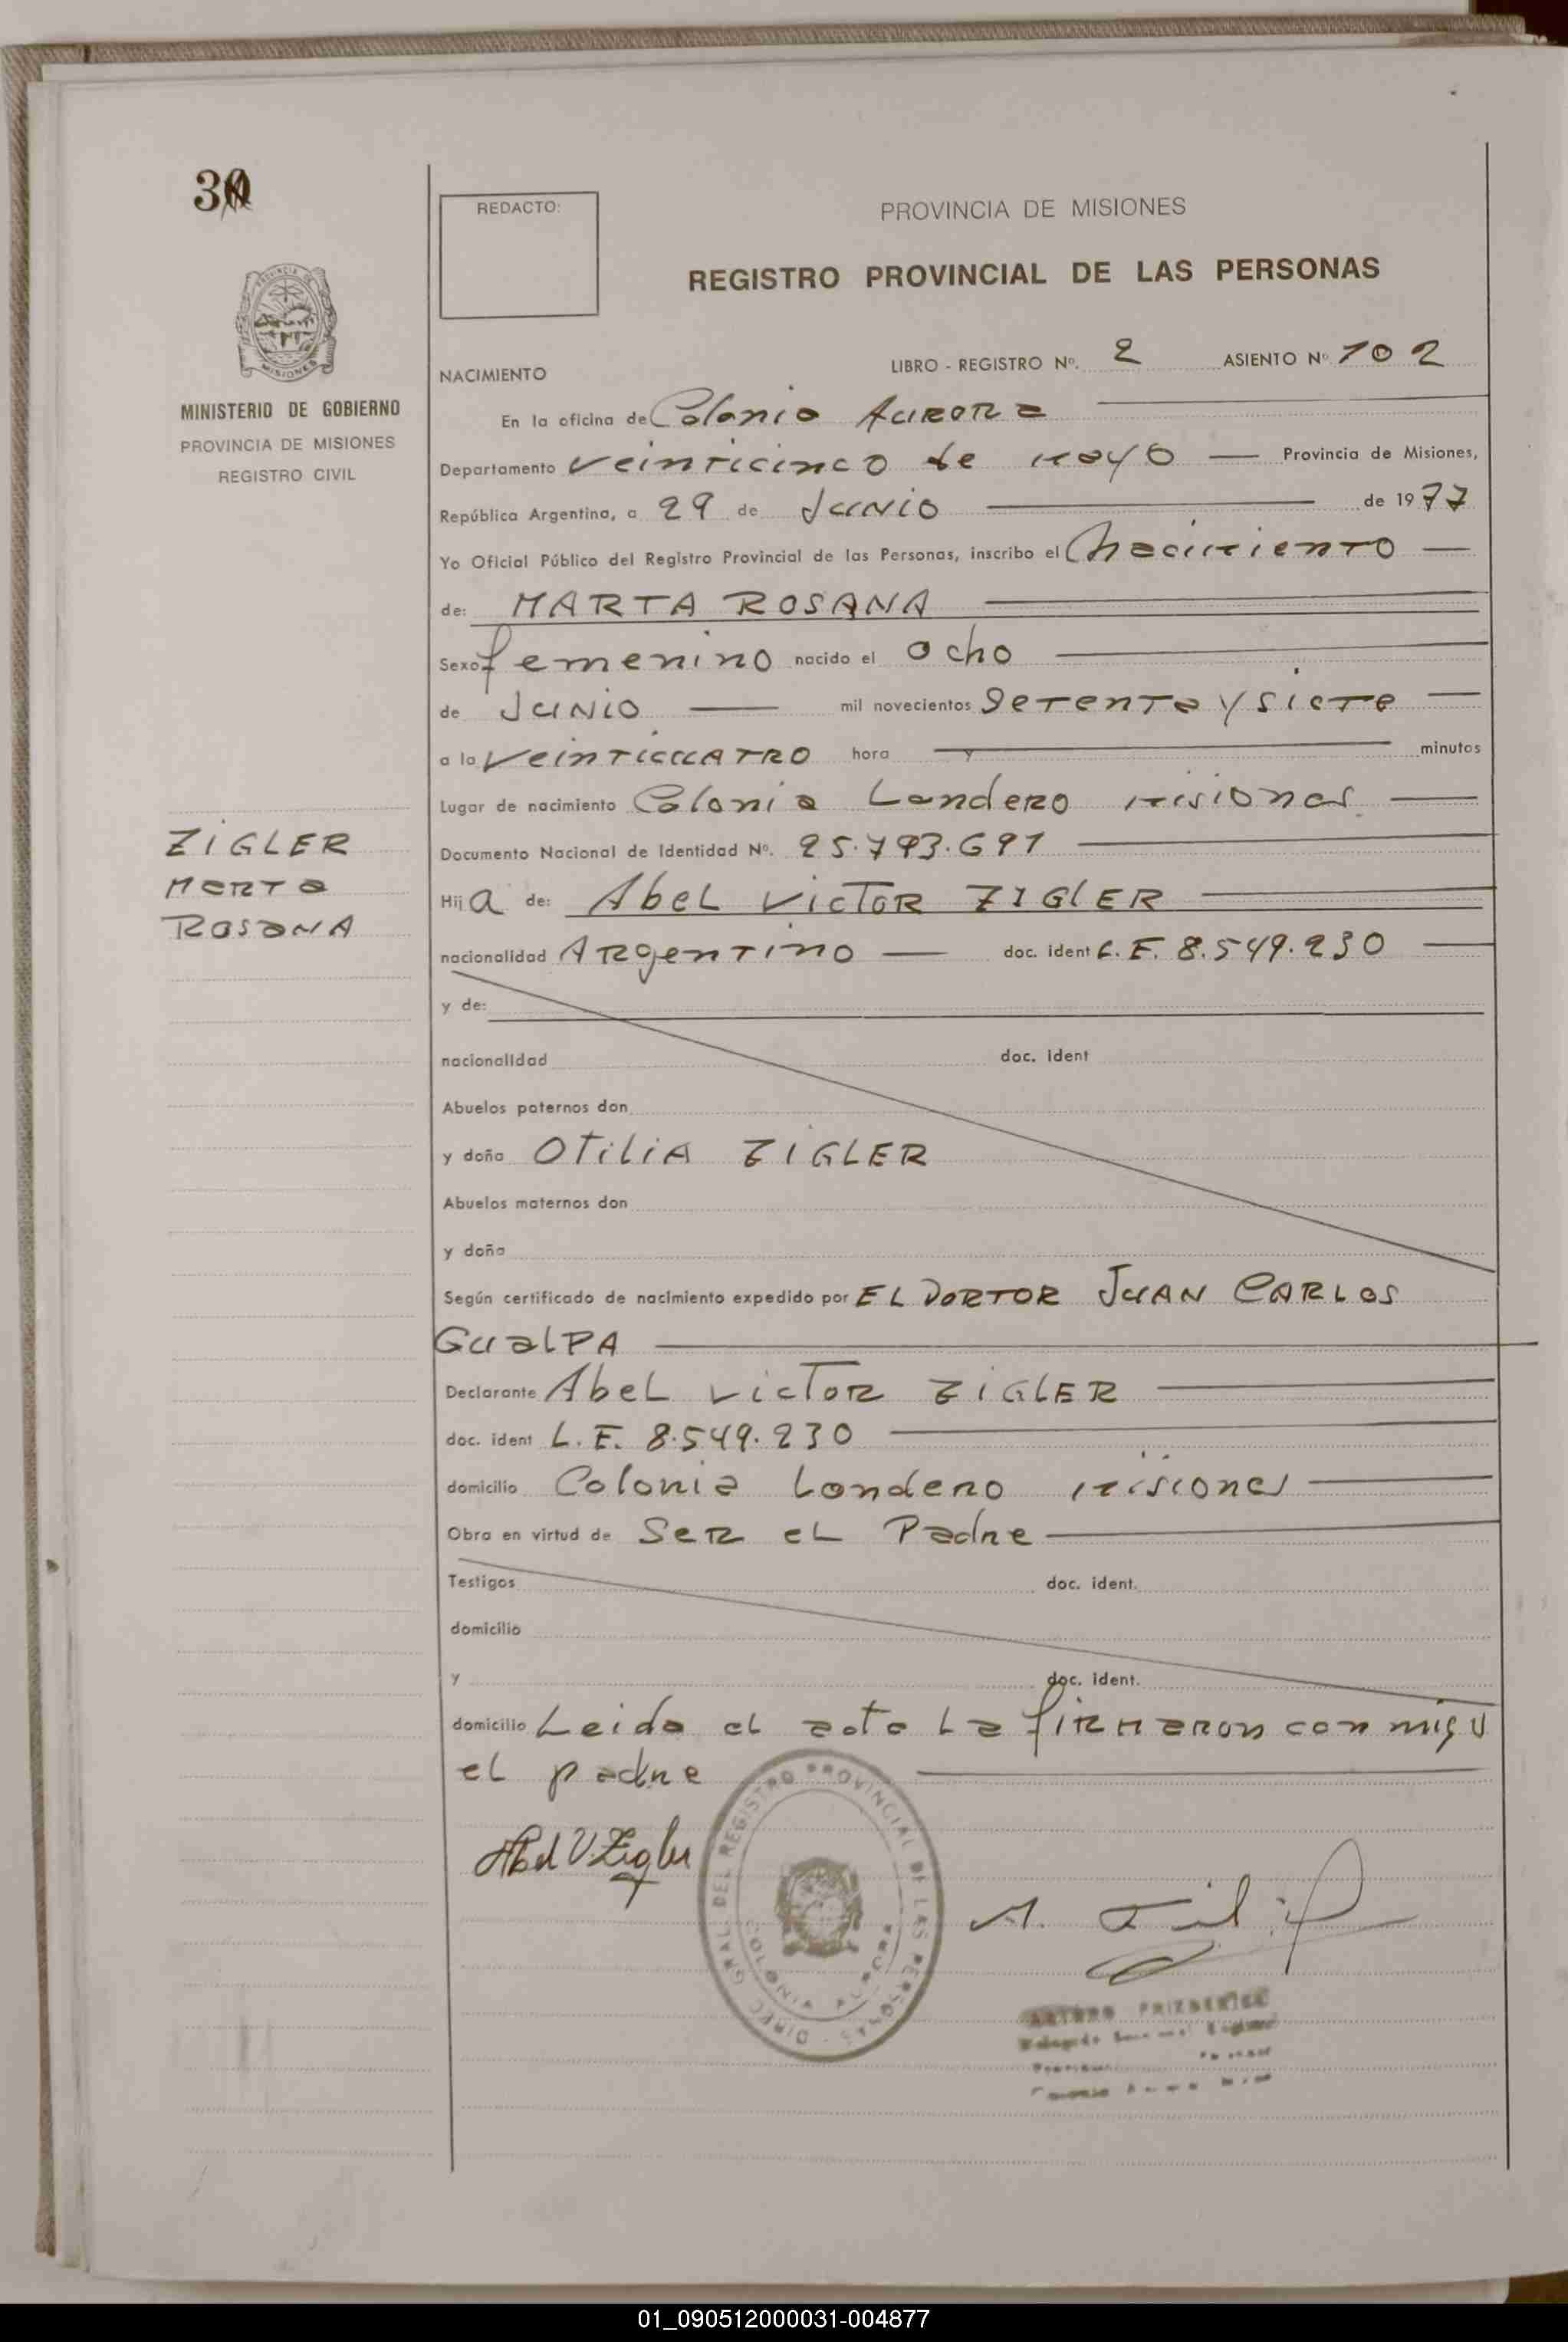 REDACTO:
PROVINCIA DE MISIONES
REGISTRO PROVINCIAL DE LAS PERSONAS
MINISTERIO DE GOBIERNO
PROVINCIA DE MISIONES
REGISTRO CIVIL
ZIGLER
MARTA
ROSANA
NACIMIENTO LIBRO - REGISTRO Nº. 2 ASIENTO Nº 102
En la oficina de Colonia AURORA
Departamento veinticinco de mayo Provincia de Misiones,
República Argentina, a 29 de JUNIO de 1977
Yo Oficial Público del Registro Provincial de las Personas, inscribo el Nacimiento
de: MARTA ROSANA
Sexo femenino nacido el ocho
de JUNIO mil novecientos Setenta y siete
a la VeinticuATRO hora y minutos
Lugar de nacimiento Colonia Londero Misiones
Documento Nacional de Identidad Nº. 25.793.691
Hija de: Abel Victor ZIGlER
nacionalidad ARgentino doc. ident L.E. 8.549.230
y de:
nacionalidad doc. ident
Abuelos paternos don
y doña OTiliA ZIGLER
Abuelos maternos don
y doña
Según certificado de nacimiento expedido por EL DORTOR JUAN CARLOS
GualPA
Declarante Abel Victor ZIGlER
doc. ident L.E. 8.549.230
domicilio Colonia Londero Misiones
Obra en virtud de Ser el Padre
Testigos doc. ident.
domicilio
y doc. ident.
domicilio Leida el acta La firmaron con migo
el padre
Abel V. Zigler
DIREC. GRAL. DEL REGISTRO PROVINCIAL DE LAS PERSONAS
COLONIA AURORA
ARTURO
01_090512000031-004877